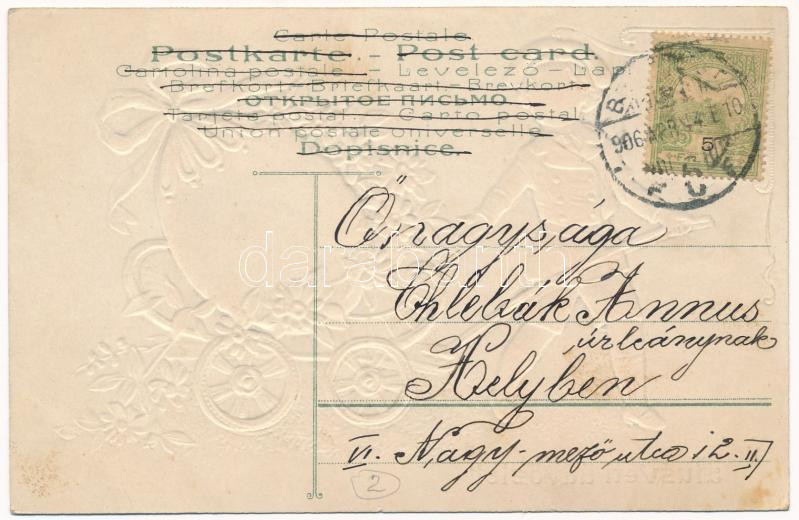 Carte Postale
Postkarte. – Post card.
Cartolina postale. – Levelező-Lap
Brefkort – Briefkaart – Brevkort
ОТКРЫТОЕ ПИСЬМО.
Tarjeta postal. Carto postal
Union postale universelle
Dopisnice.
Őnagysága
Chlebák Annus
úrleánynak
Helyben
VI. Nagy-mező utca 12. II
2
5
906 APR
darabanth